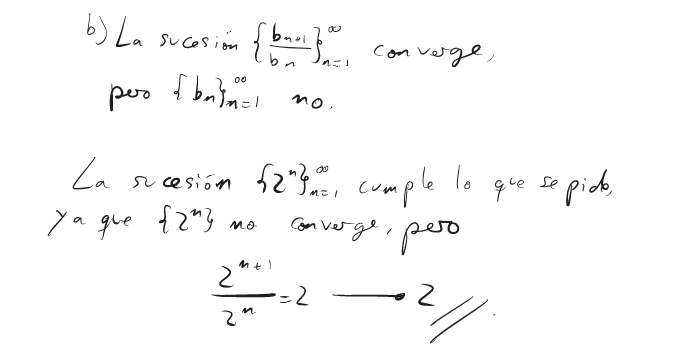 b) La sucesión {b_{n+1}/b_n}_{n=1}^∞ converge,
pero {b_n}_{n=1}^∞ no.
La sucesión {2^n}_{n=1}^∞ cumple lo que se pide,
ya que {2^n} no converge, pero
2^{n+1}/2^n = 2 → 2 //.